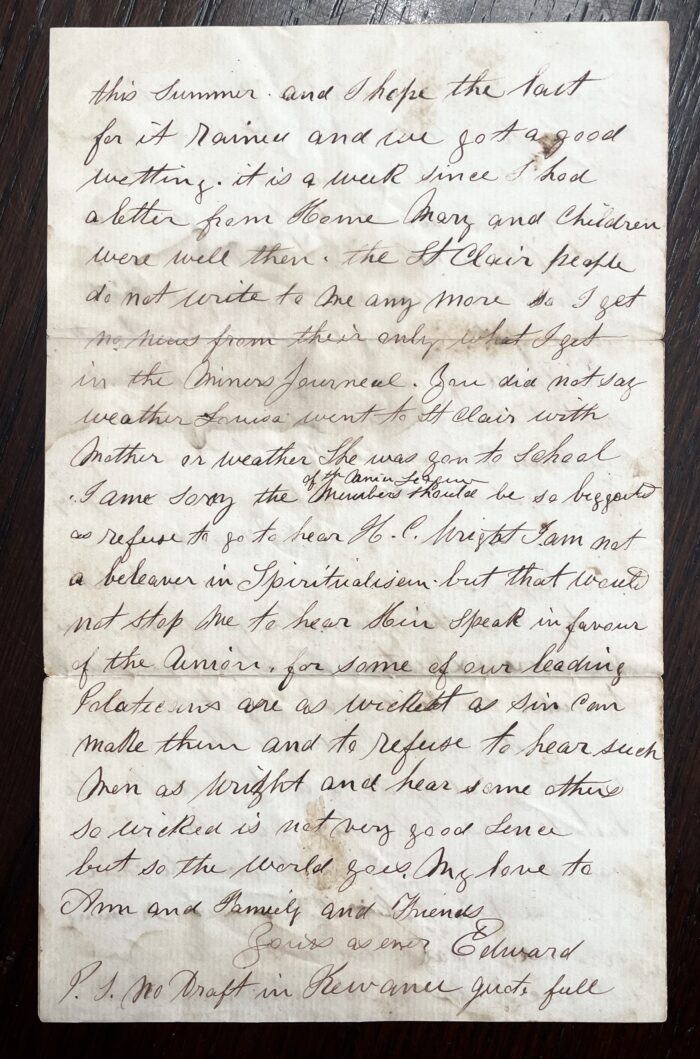 this Summer. and I hope the last
for it rained and we got a good
wetting. it is a week since I had
a letter from Home Mary and Children
were well then. the St Clair people
do not write to Me any more so I get
no news from their only what I get
in the Miners Journal. You did not say
weather Louisa went to St Clair with
Mother or weather She was gon to School
of the Union League
I am sorry the Members should be so biggoted
as refuse to go to hear H. C. Wright I am not
a beleaver in Spiritualisem but that would
not stop Me to hear Him Speak in favour
of the Union. for some of our leading
Polaticians are as wickett as sin Can
make them and to refuse to hear such
Men as Wright and hear some others
so wicked is not very good Sence
but so the World goes. My love to
Ann and Family and Friends
Yours as ever Edward
P. S. No Draft in Kewanee quota full